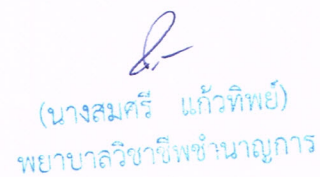 (นางสมศรี แก้วทิพย์)
พยาบาลวิชาชีพชำนาญการ